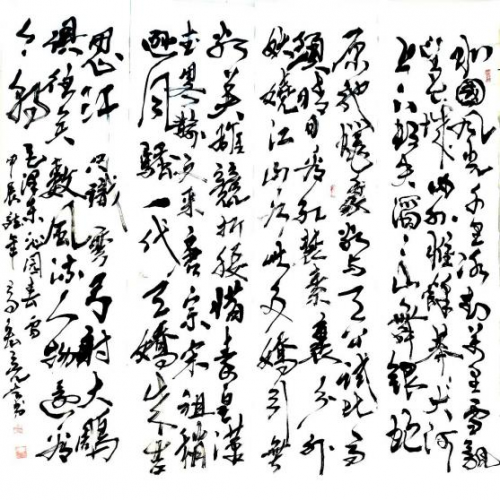 北國风光千里冰封万里雪飄
望長城内外惟餘莽莽大河
上下頓失滔滔山舞银蛇
原馳蠟象欲与天公試比高
須晴日看红装素裹分外
妖嬈江山如此多嬌引無
数英雄競折腰惜秦皇漢
武略輸文采唐宗宋祖稍
遜风骚一代天驕成吉
思汗只識弯弓射大鵰
俱往矣數风流人物還看
今朝 毛澤東沁園春雪
甲辰龍年